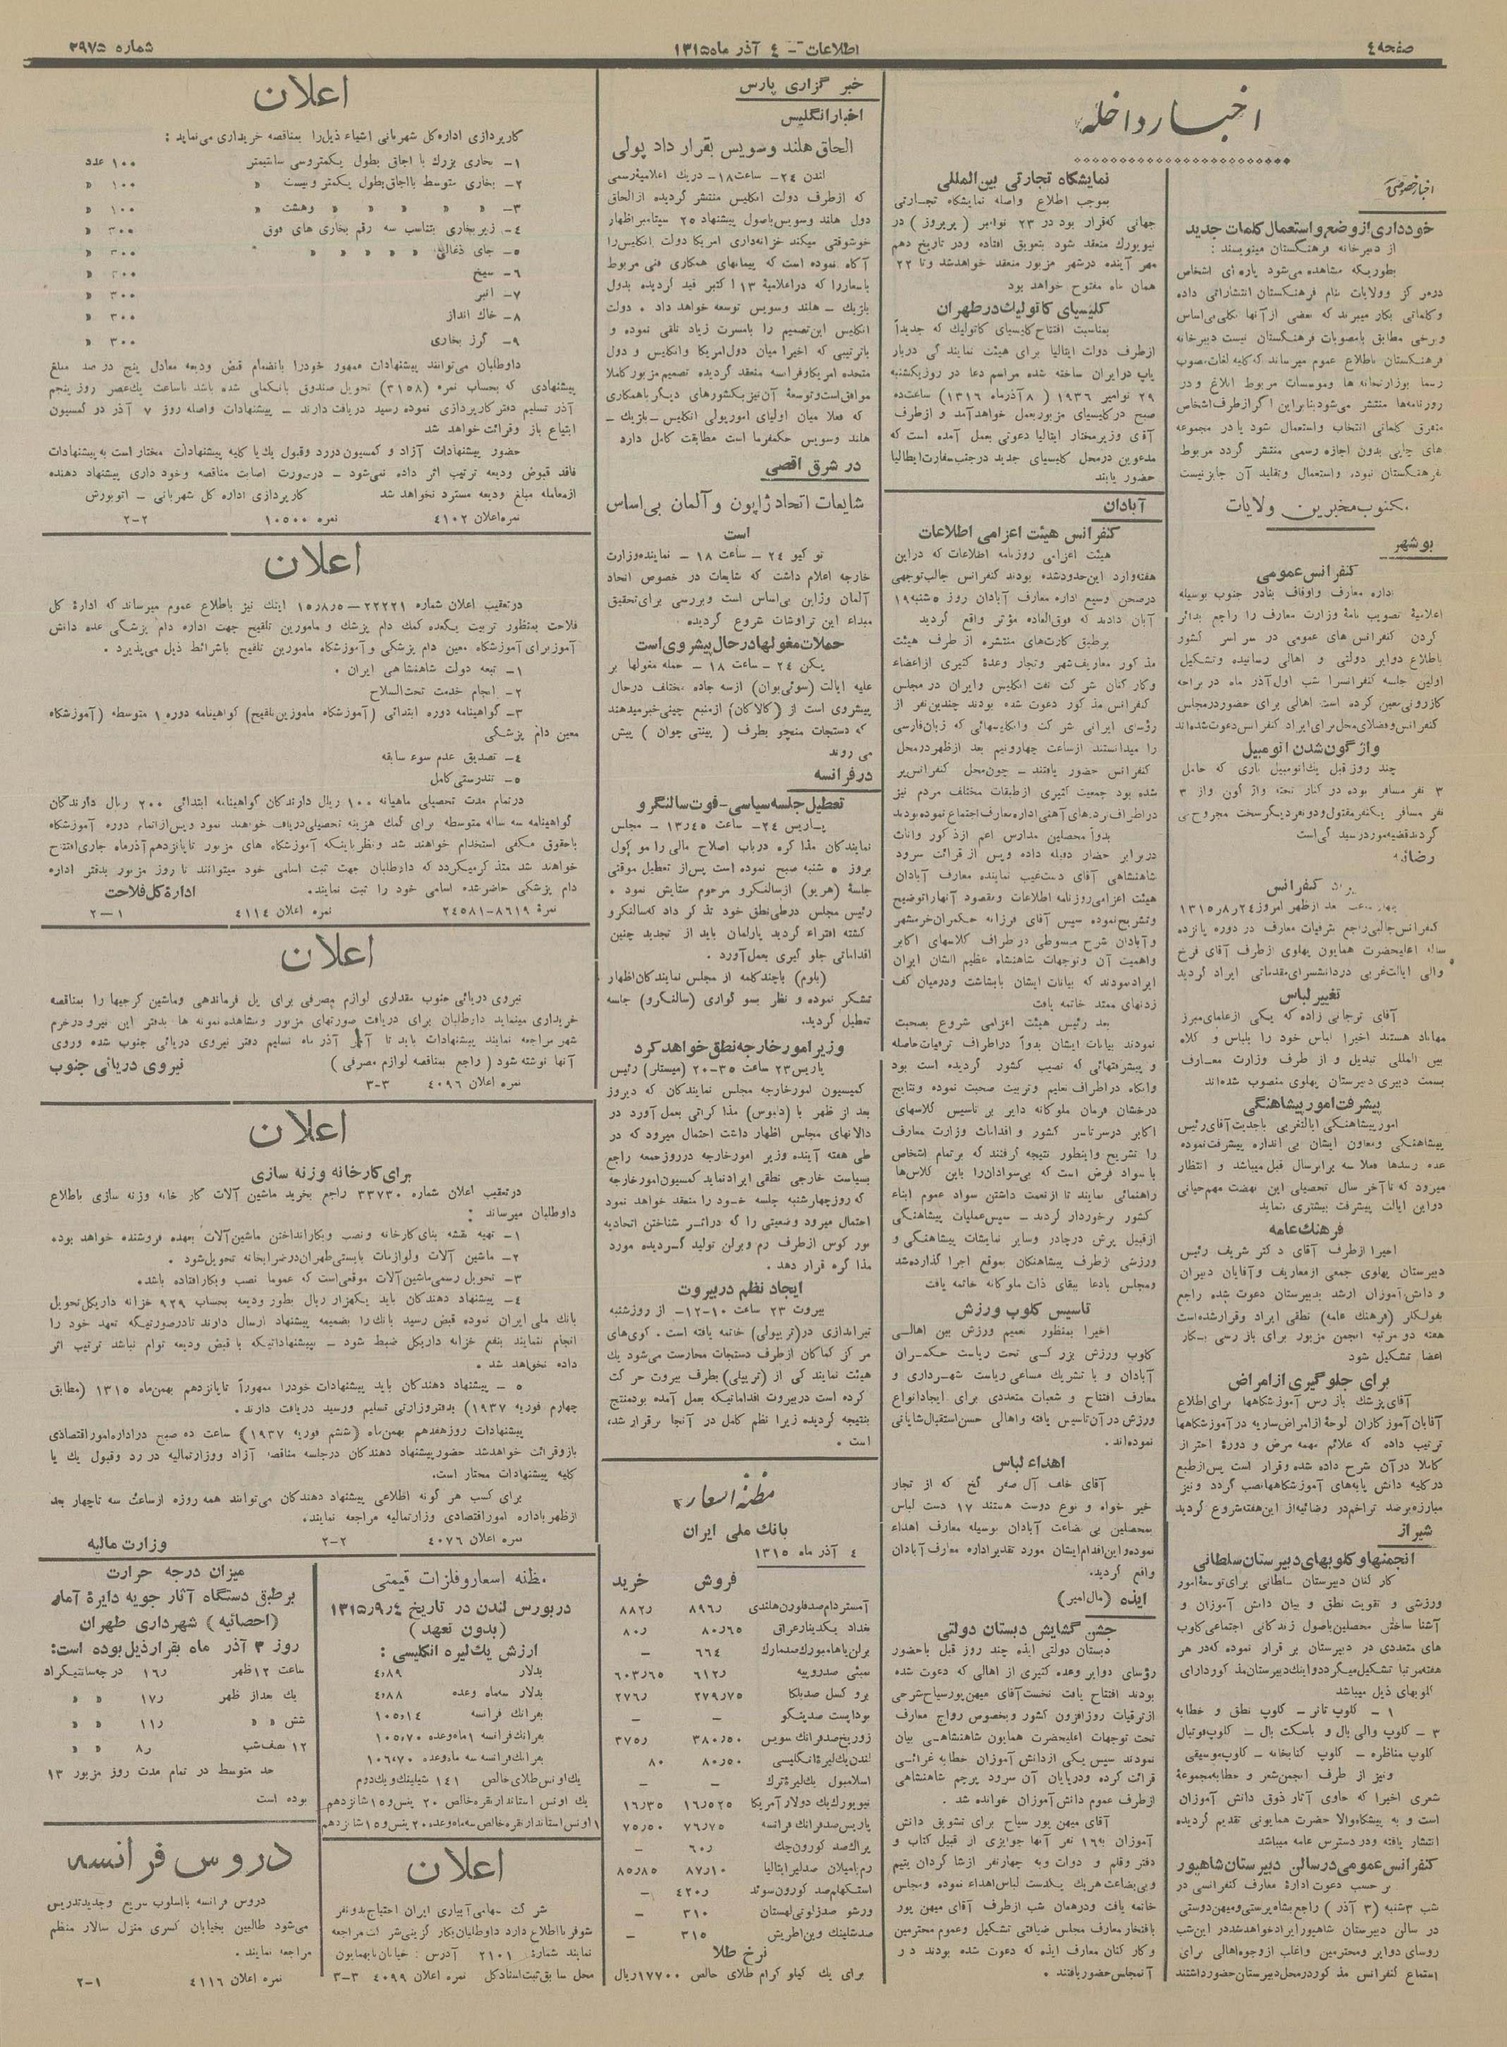 صفحه ٤
اطلاعات - ٤ آذر ماه ١٣١٥
شماره ٢٩٧٥
اخبار داخله
نمایشگاه تجارتی بین‌المللی
بموجب اطلاع واصله نمایشگاه تجارتی
جهانی که قرار بود در ٢٣ نوامبر (پریروز) در
نیویورك منعقد شود بتعویق افتاده ودر تاریخ دهم
مهر آینده درشهر مزبور منعقد خواهدشد وتا ٢٢
همان ماه مفتوح خواهد بود
کلیسیای کاتولیك در طهران
بمناسبت افتتاح کلیسیای کاتولیك که جدیداً
ازطرف دولت ایتالیا برای هیئت نمایندگی دربار
پاپ درایران ساخته شده مراسم دعا در روزیکشنبه
٢٩ نوامبر ١٩٣٦ (٨ آذرماه ١٣١٦) ساعت ده
صبح درکلیسیای مزبور بعمل خواهدآمد و ازطرف
آقای وزیرمختار ایتالیا دعوتی بعمل آمده است که
مدعوین درمحل کلیسیای جدید درجنب سفارت ایطالیا
حضور یابند
خودداری از وضع و استعمال کلمات جدید
از دبیرخانه فرهنگستان مینویسند :
بطوریکه مشاهده می‌شود پاره‌ای اشخاص
درمرکز وولایات بنام فرهنگستان انتشاراتی داده
وکلماتی بکار میبرند که بعضی از آنها بکلی بی‌اساس
وبرخی مطابق بامصوبات فرهنگستان نیست دبیرخانه
فرهنگستان باطلاع عموم میرساند که کلیه لغات مصوب
رسما بوزارتخانه ها وموسسات مربوط ابلاغ و در
روزنامه‌ها منتشر می‌شود بنابراین اگر ازطرف اشخاص
متفرق کلماتی انتخاب واستعمال شود یا در مجموعه
های چاپی بدون اجازه رسمی منتشر گردد مربوط
بفرهنگستان نبوده واستعمال وتقلید آن جایزنیست
مکتوب مخبرین ولایات
بوشهر
کنفرانس عمومی
اداره معارف واوقاف بنادر جنوب بوسیله
اعلامیهٔ تصویب نامهٔ وزارت معارف را راجع بدائر
کردن کنفرانس های عمومی در سراسر کشور
باطلاع دوایر دولتی و اهالی رسانیده وتشکیل
اولین جلسه کنفرانس‌را شب اول آذر ماه در
کازرونی معین کرده است اهالی برای حضوردرمجلس
کنفرانس وفضلای محل برای ایراد کنفرانس دعوت شده‌اند
واژگون شدن اتومبیل
چند روز قبل یك اتومبیل باری که حامل
٣ نفر مسافر بوده در کنار تخته واژگون واز ٣
نفر مسافر یکنفر مقتول ودونفردیگر سخت مجروح می
گردند قضیه مورد رسیدگی است
کنفرانس
کنفرانس جالبی راجع بترقیات معارف در دوره پانزده
ساله اعلیحضرت همایون پهلوی ازطرف آقای فرخ
والی ایالت غربی در دانشسرای مقدماتی ایراد گردید
تغییر لباس
آقای ترجانی زاده که یکی ازعلمای مبرز
مهاباد هستند اخیرا لباس خود را بلباس و کلاه
بین المللی تبدیل و از طرف وزارت معارف
بسمت دبیری دبیرستان پهلوی منصوب شده‌اند
پیشرفت امور پیشاهنگی
امور پیشاهنگی ایالت‌غربی باجدیت آقای رئیس
پیشاهنگی ومعاون ایشان بی اندازه پیشرفت نموده
عده رسدها فعلا سه برابر سال قبل میباشد و انتظار
میرود که تا آخر سال تحصیلی این نهضت مهم حیاتی
دراین ایالت پیشرفت بیشتری نماید
فرهنك عامه
اخیرا ازطرف آقای دکتر شریف رئیس
دبیرستان پهلوی جمعی ازمعاریف وآقایان دبیران
و دانش‌آموزان ارشد بدبیرستان دعوت شده راجع
بفولکلر (فرهنك عامه) نطقی ایراد وقرارشده است
هفته دو مرتبه انجمن مزبور برای بازرسی بکار
اعضا تشکیل شود
برای جلوگیری از امراض
آقای پزشك بازرس آموزشگاهها برای اطلاع
آقایان آموزگاران لوحهٔ ازامراض ساریه در آموزشگاهها
ترتیب داده که علائم مهمه مرض و دورهٔ احتراز
کاملا درآن شرح داده شده وقرار است پس‌ازطبع
درکلیه دانش پایه‌های آموزشگاهها نصب گردد ونیز
مبارزه برضد تراخم در رضائیه از این هفته شروع گردید
شیراز
انجمنها و کلوبهای دبیرستان سلطانی
کارکنان دبیرستان سلطانی برای توسعهٔ امور
ورزشی و تقویت نطق و بیان دانش آموزان و
آشنا ساختن محصلین باصول زندگانی اجتماعی کلوب
های متعددی در دبیرستان برقرار نموده که در هر
هفته مرتبا تشکیل میگردد واینك دبیرستان مذکور دارای
کلوبهای ذیل میباشد
١ - کلوب تاتر - کلوب نطق و خطابه
٣ - کلوپ والی بال و باسکت بال - کلوپ فوتبال
کلوپ مناظره - کلوپ کتابخانه - کلوپ موسیقی
ونیز از طرف انجمن شعر و خطابه مجموعهٔ
شعری اخیرا که حاوی آثار ذوق دانش آموزان
است و به پیشگاه والا حضرت همایونی تقدیم گردیده
انتشار یافته ودر دسترس عامه میباشد
کنفرانس عمومی در سالن دبیرستان شاهپور
برحسب دعوت ادارهٔ معارف کنفرانسی در
شب ٣شنبه (٣ آذر) راجع بشاه پرستی ومیهن دوستی
در سالن دبیرستان شاهپور ایراد خواهدشد در این شب
روسای دوایر ومحترمین واغلب ازوجوه اهالی برای
استماع کنفرانس مذکور در محل دبیرستان حضور داشتند
آبادان
کنفرانس هیئت اعزامی اطلاعات
هیئت اعزامی روزنامه اطلاعات که دراین
هفته وارد این‌حدود شده بودند کنفرانس جالب توجهی
درصحن وسیع اداره معارف آبادان روز ٥ شنبه ١٩
آبان دادند که فوق‌العاده مؤثر واقع گردید
برطبق کارت‌های منتشره از طرف هیئت
مذکور معاریف شهر وتجار وعدهٔ کثیری ازاعضاء
وکارکنان شرکت نفت انگلیس وایران در مجلس
کنفرانس مذکور دعوت شده بودند چندین نفر از
رؤسای ایرانی شرکت وانگلیسهائی که زبان فارسی
را میدانستند ازساعت چهارونیم بعد ازظهر درمحل
کنفرانس حضور یافتند - چون محل کنفرانس پر
شده بود جمعیت کثیری ازطبقات مختلف مردم نیز
دراطراف نرده‌های آهنی اداره معارف اجتماع نموده بودند
بدواً محصلین مدارس اعم ازذکور واناث
دربرابر حضار دفیله داده وپس از قرائت سرود
شاهنشاهی آقای دست‌غیب نماینده معارف آبادان
هیئت اعزامی روزنامه اطلاعات ومقصود آنهارا توضیح
وتشریح نموده سپس آقای فرزانه حکمران خرمشهر
وآبادان شرح مبسوطی در طراف کلاسهای اکابر
واهمیت آن وتوجهات شاهنشاه عظیم الشان ایران
ایراد نمودند که بیانات ایشان بابشاشت ودرمیان کف
زدنهای ممتد خاتمه یافت
بعد رئیس هیئت اعزامی شروع بصحبت
نمودند بیانات ایشان بدواً دراطراف ترقیات حاصله
و پیشرفتهائی که نصیب کشور گردیده است بود
وانگاه دراطراف تعلیم وتربیت صحبت نموده ونتایج
درخشان فرمان ملوکانه دایر بر تاسیس کلاسهای
اکابر درسرتاسر کشور و اقدامات وزارت معارف
را تشریح واینطور نتیجه گرفتند که برتمام اشخاص
باسواد فرض است که بی‌سوادان‌را باین کلاس‌ها
راهنمائی نمایند تا ازنعمت داشتن سواد عموم ابناء
کشور برخوردار گردند - سپس عملیات پیشاهنگی
ازقبیل پرش درچادر وسایر نمایشات پیشاهنگی و
ورزشی ازطرف پیشاهنگان بموقع اجرا گذارده شد
ومجلس بادعا ببقای ذات ملوکانه خاتمه یافت
تاسیس کلوب ورزش
اخیرا بمنظور تعمیم ورزش بین اهالی
کلوب ورزش بزرگی تحت ریاست حکمران
آبادان و با تشریك مساعی ریاست شهرداری و
معارف افتتاح و شعبات متعددی برای ایجاد انواع
ورزش درآن تاسیس یافته واهالی حسن استقبال شایانی
نموده‌اند.
اهداء لباس
آقای خلف آل صقر گنج که از تجار
خیر خواه و نوع دوست هستند ١٧ دست لباس
بمحصلین بی بضاعت آبادان بوسیله معارف اهداء
نموده واین اقدام ایشان مورد تقدیر اداره معارف آبادان
واقع گردید.
ایذه (مال‌امیر)
جشن گشایش دبستان دولتی
دبستان دولتی ایذه چند روز قبل باحضور
رؤسای دوایر وعده کثیری از اهالی که دعوت شده
بودند افتتاح یافت نخست آقای میهن پور سیاح شرحی
ازترقیات روزافزون کشور وبخصوص رواج معارف
تحت توجهات اعلیحضرت همایون شاهنشاهی بیان
نمودند سپس یکی ازدانش آموزان خطابه غرائی
قرائت کرده ودرپایان آن سرود پرچم شاهنشاهی
ازطرف عموم دانش‌آموزان خوانده شد .
آقای میهن پور سیاح برای تشویق دانش
آموزان به ١٦ نفر آنها جوایزی از قبیل کتاب و
دفتر وقلم و دوات وبه چهارنفر ازشاگردان یتیم
وبی‌بضاعت هریك یکدست لباس اهداء نموده ومجلس
خاتمه یافت ودرهمان شب ازطرف آقای میهن پور
بافتخار معارف مجلس ضیافتی تشکیل وعموم محترمین
وکارکنان معارف ایذه که دعوت شده بودند در
آنمجلس حضور یافتند .
خبرگزاری پارس
اخبار انگلیس
الحاق هلند وسویس بقرار داد پولی
لندن ٢٤ - ساعت ١٨ - دریك اعلامیهٔ رسمی
که ازطرف دولت انگلیس منتشر گردیده ازالحاق
دول هلند وسویس باصول پیشنهاد ٢٥ سپتامبر اظهار
خوشوقتی میکند خزانه‌داری امریکا دولت انگلیس‌را
آگاه نموده است که پیمانهای همکاری فنی مربوط
باسعاررا که دراعلامیهٔ ١٣ اکتبر قید گردیده بدول
بلژیك - هلند وسویس توسعه خواهد داد . دولت
انگلیس این‌تصمیم را بامسرت زیاد تلقی نموده و
باترتیبی که اخیرا میان دول‌امریکا وانگلیس و دول
متحده امریکا وفرانسه منعقد گردیده تصمیم مزبور کاملا
موافق است وتوسعهٔ آن نیز بکشورهای دیگر باهمکاری
که فعلا میان اولیای امور پولی انگلیس - بلژیك -
هلند وسویس حکمفرما است مطابقت کامل دارد
در شرق اقصی
شایعات اتحاد ژاپون و آلمان بی‌اساس
است
توکیو ٢٤ - ساعت ١٨ - نماینده وزارت
خارجه اعلام داشت که شایعات در خصوص اتحاد
آلمان وژاپن بی‌اساس است وبررسی برای تحقیق
مبداء این تراوشات شروع گردیده
حملات مغولها در حال پیشروی است
پکن ٢٤ - ساعت ١٨ - حمله مغولها بر
علیه ایالت (سوئی‌یوان) ازسه جاده مختلف درحال
پیشروی است از (کالاکان) ازمنبع چینی خبرمیدهند
که دستجات منچو بطرف (پینتی جوان) پیش
می روند
در فرانسه
تعطیل جلسه سیاسی - فوت سالنگرو
پاریس ٢٤ - ساعت ١٣٫٤٥ - مجلس
نمایندگان مذاکره درباب اصلاح مالی را موکول
بروز ٥ شنبه صبح نموده است پس‌از تعطیل موقتی
جلسهٔ (هریو) ازسالنگرو مرحوم ستایش نمود .
رئیس مجلس درطی نطق خود تذکر داد که سالنگرو
کشته افتراء گردید پارلمان باید از تجدید چنین
اقداماتی جلوگیری بعمل آورد .
(بلوم) باچند کلمه از مجلس نمایندگان اظهار
تشکر نموده و نظر بسوگواری (سالنگرو) جلسه
تعطیل گردید.
وزیر امور خارجه نطق خواهد کرد
پاریس ٢٣ ساعت ٢٠-٣٥ (میستلر) رئیس
کمیسیون امورخارجه مجلس نمایندگان که دیروز
بعد از ظهر با (دلبوس) مذاکراتی بعمل آورد در
دالانهای مجلس اظهار داشت احتمال میرود که در
طی هفته آینده وزیر امورخارجه درروز جمعه راجع
بسیاست خارجی نطقی ایراد نماید کمسیون امورخارجه
که روز چهارشنبه جلسه خود را منعقد خواهد نمود
احتمال میرود وضعیتی را که دراثر شناختن اتحادیه
بورگوس ازطرف رم وبرلن تولید گردیده مورد
مذاکره قرار دهد .
ایجاد نظم در بیروت
بیروت ٢٣ ساعت ١٠-١٢- از روزشنبه
تیراندازی در(تریپولی) خاتمه یافته است . کوی‌های
مرکز کماکان ازطرف دستجات محارست می‌شود یك
هیئت نمایندگی از (تریپلی) بطرف بیروت حرکت
کرده است دربیروت اقداماتیکه بعمل آمده بود منتج
بنتیجه گردیده زیرا نظم کامل در آنجا برقرار شده
است .
مظنه اسعار
بانك ملی ایران
٤ آذر ماه ١٣١٥
فروش خرید
آمستردام صد فلورن هلندی ٨٩٦٫ ٨٨٢٫
بغداد یکدینار عراق ٨٠٫٦٥ ٨٠٫
برلن یاهامبورك صدمارك ٦٦٤ -
بمبئی صدروپیه ٦١٢٫ ٦٠٣٫٦٥
بروکسل صد بلگا ٢٧٩٫٧٥ ٢٧٦٫
بوداپست صد پنگو - -
زوریخ صد فرانك سویس ٣٨٠٫٥٠ ٣٧٥٫
لندن یك لیرهٔ انگلیسی ٨٠٫٥٠ ٨٠
اسلامبول یك لیرهٔ ترك - -
نیویورك یك دولار آمریکا ١٦٫٥٢٥ ١٦٫٣٥
پاریس صد فرانك فرانسه ٧٦٫٧٥ ٧٥٫٥٠
پراك صد کورون چك ٦٠٫ -
رم یا میلان صد لیر ایتالیا ٨٧٫١٠ ٨٥٫٨٥
استکهلم صد کورون سوئد ٤٢٠٫ -
ورشو صد زلوتی لهستان ٣١٠ -
صد شلینك وین اطریش ٣١٥ -
نرخ طلا
برای یك کیلو گرام طلای خالص ١٧٧٠٠ ریال
اعلان
کارپردازی اداره کل شهربانی اشیاء ذیل‌را بمناقصه خریداری می‌نماید :
١- بخاری بزرك با اجاق بطول یکمتروسی سانتیمتر ١٠٠ عدد
٢- بخاری متوسط با اجاق بطول یکمتر وبیست « ١٠٠ «
٣- « « « « « وهشت « ١٠٠ «
٤- زیر بخاری بتناسب سه رقم بخاری های فوق ٣٠٠ «
٥- جای ذغالی « « « « ٣٠٠ «
٦- سیخ ٣٠٠ «
٧- انبر ٣٠٠ «
٨- خاك انداز ٣٠٠ «
٩- گرز بخاری ٣٠٠ «
داوطلبان می‌توانند پیشنهادات ممهور خودرا بانضمام قبض ودیعه معادل پنج در صد مبلغ
پیشنهادی که بحساب نمره (٣١٥٨) تحویل صندوق بانك ملی شده باشد تاساعت یك عصر روز پنجم
آذر تسلیم دفتر کارپردازی نموده رسید دریافت دارند - پیشنهادات واصله روز ٧ آذر در کمسیون
ابتیاع باز وقرائت خواهد شد
حضور پیشنهادات آزاد و کمسیون دررد وقبول یك یا کلیه پیشنهادات مختار است به پیشنهادات
فاقد قبوض ودیعه ترتیب اثر داده نمی‌شود - درصورت اصابت مناقصه وخود داری پیشنهاد دهنده
ازمعامله مبلغ ودیعه مسترد نخواهد شد کارپردازی اداره کل شهربانی - اتوبورش
نمره اعلان ٤١٠٢ نمره ١٠٥٠٠ ٢-٢
اعلان
درتعقیب اعلان شماره ٢٢٢٢١-١٥٫٨٫٥ اینك نیز باطلاع عموم میرساند که ادارهٔ کل
فلاحت بمنظور تربیت یکعده کمك دام پزشك و مامورین تلقیح جهت اداره دام پزشکی عده دانش
آموز برای آموزشگاه معین دام پزشکی و آموزشگاه مامورین تلقیح باشرائط ذیل می‌پذیرد .
١- تبعه دولت شاهنشاهی ایران .
٢- انجام خدمت تحت‌السلاح
٣- گواهینامه دوره ابتدائی (آموزشگاه مامورین تلقیح) گواهینامه دوره ١ متوسطه (آموزشگاه
معین دام پزشکی
٤- تصدیق عدم سوء سابقه
٥- تندرستی کامل
درتمام مدت تحصیلی ماهیانه ١٠٠ ریال دارندگان گواهینامه ابتدائی ٢٠٠ ریال دارندگان
گواهینامه سه ساله متوسطه برای کمك هزینه تحصیلی دریافت خواهند نمود وپس ازاتمام دوره آموزشگاه
باحقوق مکفی استخدام خواهند شد ونظر باینکه آموزشگاه های مزبور تاپانزدهم آذرماه جاری افتتاح
خواهند شد متذکر میگردد که داوطلبان جهت ثبت اسامی خود میتوانند تا روز مزبور بدفتر اداره
دام پزشکی حاضر شده اسامی خود را ثبت نمایند. ادارهٔ کل فلاحت
نمرهٔ ٨٦١٩-٢٤٥٨١ نمره اعلان ٤١١٤ ١-٢
اعلان
نیروی دریائی جنوب مقداری لوازم مصرفی برای پل فرماندهی وماشین کرجیها را بمناقصه
خریداری مینماید داوطلبان برای دریافت صورتهای مزبور ومشاهده نمونه ها بدفتر این نیرو درخرم
شهر مراجعه نمایند پیشنهادات باید تا آخر آذر ماه تسلیم دفتر نیروی دریائی جنوب شده وروی
آنها نوشته شود (راجع بمناقصه لوازم مصرفی) نیروی دریائی جنوب
نمره اعلان ٤٠٩٦ ٣-٣
اعلان
برای کارخانه وزنه سازی
درتعقیب اعلان شماره ٣٣٧٣٠ راجع بخرید ماشین آلات کارخانه وزنه سازی باطلاع
داوطلبان میرساند :
١- تهیه نقشه بنای کارخانه ونصب وبکار انداختن ماشین‌آلات بعهده فروشنده خواهد بوده
٢- ماشین آلات ولوازمات بایستی طهران درضرابخانه تحویل شود .
٣- تحویل رسمی ماشین آلات موقعی است که عموما نصب وبکار افتاده باشد.
٤- پیشنهاد دهندگان باید یکهزار ریال بطور ودیعه بحساب ٩٢٩ خزانه داریکل تحویل
بانك ملی ایران نموده قبض رسید بانك را بضمیمه پیشنهاد ارسال دارند تا درصورتیکه تعهد خود را
انجام ننمایند بنفع خزانه داریکل ضبط شود - پیشنهاداتیکه با قبض ودیعه توام نباشد ترتیب اثر
داده نخواهد شد .
٥- پیشنهاد دهندگان باید پیشنهادات خودرا ممهوراً تاپانزدهم بهمن‌ماه ١٣١٥ (مطابق
چهارم فوریه ١٩٣٧) بدفتر وزارتی تسلیم ورسید دریافت دارند .
پیشنهادات روز هفدهم بهمن‌ماه (ششم فوریه ١٩٣٧) ساعت ده صبح دراداره امور اقتصادی
باز وقرائت خواهدشد حضور پیشنهاد دهندگان درجلسه مناقصه آزاد ووزارت مالیه در رد وقبول یك یا
کلیه پیشنهادات مختار است.
برای کسب هر گونه اطلاعی پیشنهاد دهندگان می‌توانند همه روزه ازساعت سه تاچهار بعد
ازظهر باداره امور اقتصادی وزارت مالیه مراجعه نمایند.
نمره اعلان ٤٠٧٦ ٢-٢ وزارت مالیه
مظنه اسعار و فلزات قیمتی
در بورس لندن در تاریخ ١٣١٥٫٩٫٤
(بدون تعهد)
ارزش یك لیره انگلیسی :
بدلار ٤٫٨٩
بدلار سه‌ماه وعده ٤٫٨٨
بفرانك فرانسه ١٠٥٫١٤
بفرانك فرانسه ١ماه وعده ١٠٥٫٧٠
بفرانك فرانسه سه ماه وعده ١٠٦٫٧٠
یك اونس طلای خالص ١٤١ شیلینك ویك دوم
یك اونس استاندارد نقره خالص ٢٠ پنس و١٥ شانزدهم
١ اونس استاندارد نقره خالص سه ماه وعده ٢٠ پنس و١٥ شانزدهم
اعلان
شرکت سهامی آبیاری ایران احتیاج بدونفر
شوفر با اطلاع دارد داوطلبان بکارگزینی شرکت مراجعه
نمایند شماره ٢١٠١ آدرس : خیابان باغ همایون
محل سابق ثبت اسناد کل نمره اعلان ٤٠٩٩ ٣-٣
میزان درجه حرارت
برطبق دستگاه آثار جویه دایرهٔ آمار
(احصائیه) شهرداری طهران
روز ٣ آذر ماه بقرار ذیل بوده است :
ساعت ١٢ ظهر ١٦٫ درجه سانتیگراد
یك بعداز ظهر ١٧٫ « «
شش « « ١١٫ « «
١٢ نصف شب ٨٫ « «
حد متوسط در تمام مدت روز مزبور ١٣
بوده است
دروس فرانسه
دروس فرانسه با اسلوب سریع و جدید تدریس
می‌شود طالبین بخیابان کسری منزل سالار منظم
مراجعه نمایند.
نمره اعلان ٤١١٦ ١-٢